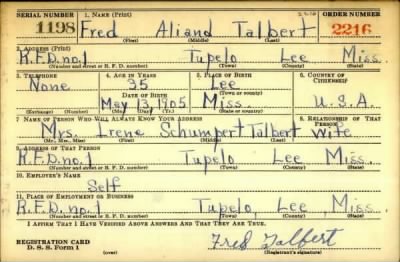 SERIAL NUMBER 1. NAME (Print) ORDER NUMBER
1198 Fred Aliand Talbert 2216
(First) (Middle) (Last)
2. ADDRESS (Print)
R.F.D. no. 1 Tupelo Lee Miss.
(Number and street or R. F. D. number) (Town) (County) (State)
3. TELEPHONE 4. AGE IN YEARS 5. PLACE OF BIRTH 6. COUNTRY OF CITIZENSHIP
None 35 Lee
DATE OF BIRTH (Town or county)
May 13 1905 Miss. U.S.A.
(Exchange) (Number) (Mo.) (Day) (Yr.) (State or country)
7. NAME OF PERSON WHO WILL ALWAYS KNOW YOUR ADDRESS 8. RELATIONSHIP OF THAT PERSON
Mrs. Irene Schumpert Talbert Wife
(Mr., Mrs., Miss) (First) (Middle) (Last)
9. ADDRESS OF THAT PERSON
R.F.D. no. 1 Tupelo Lee Miss.
(Number and street or R. F. D. number) (Town) (County) (State)
10. EMPLOYER'S NAME
Self
11. PLACE OF EMPLOYMENT OR BUSINESS
R.F.D. no. 1 Tupelo, Lee, Miss.
(Number and street or R. F. D. number) (Town) (County) (State)
I AFFIRM THAT I HAVE VERIFIED ABOVE ANSWERS AND THAT THEY ARE TRUE.
REGISTRATION CARD
D. S. S. Form 1
Fred Talbert
(Registrant's signature)